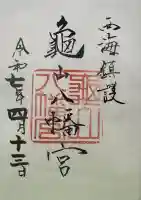 西海鎮護
龜山八幡宮
令和七年四月十三日